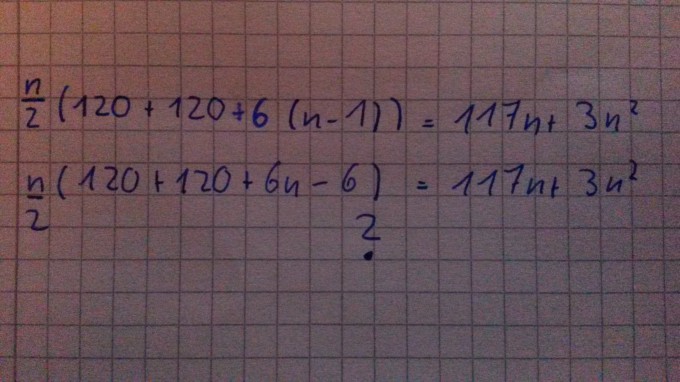 n/2 (120 + 120 + 6 (n - 1)) = 117n + 3n²
n/2 (120 + 120 + 6n - 6) = 117n + 3n²
?